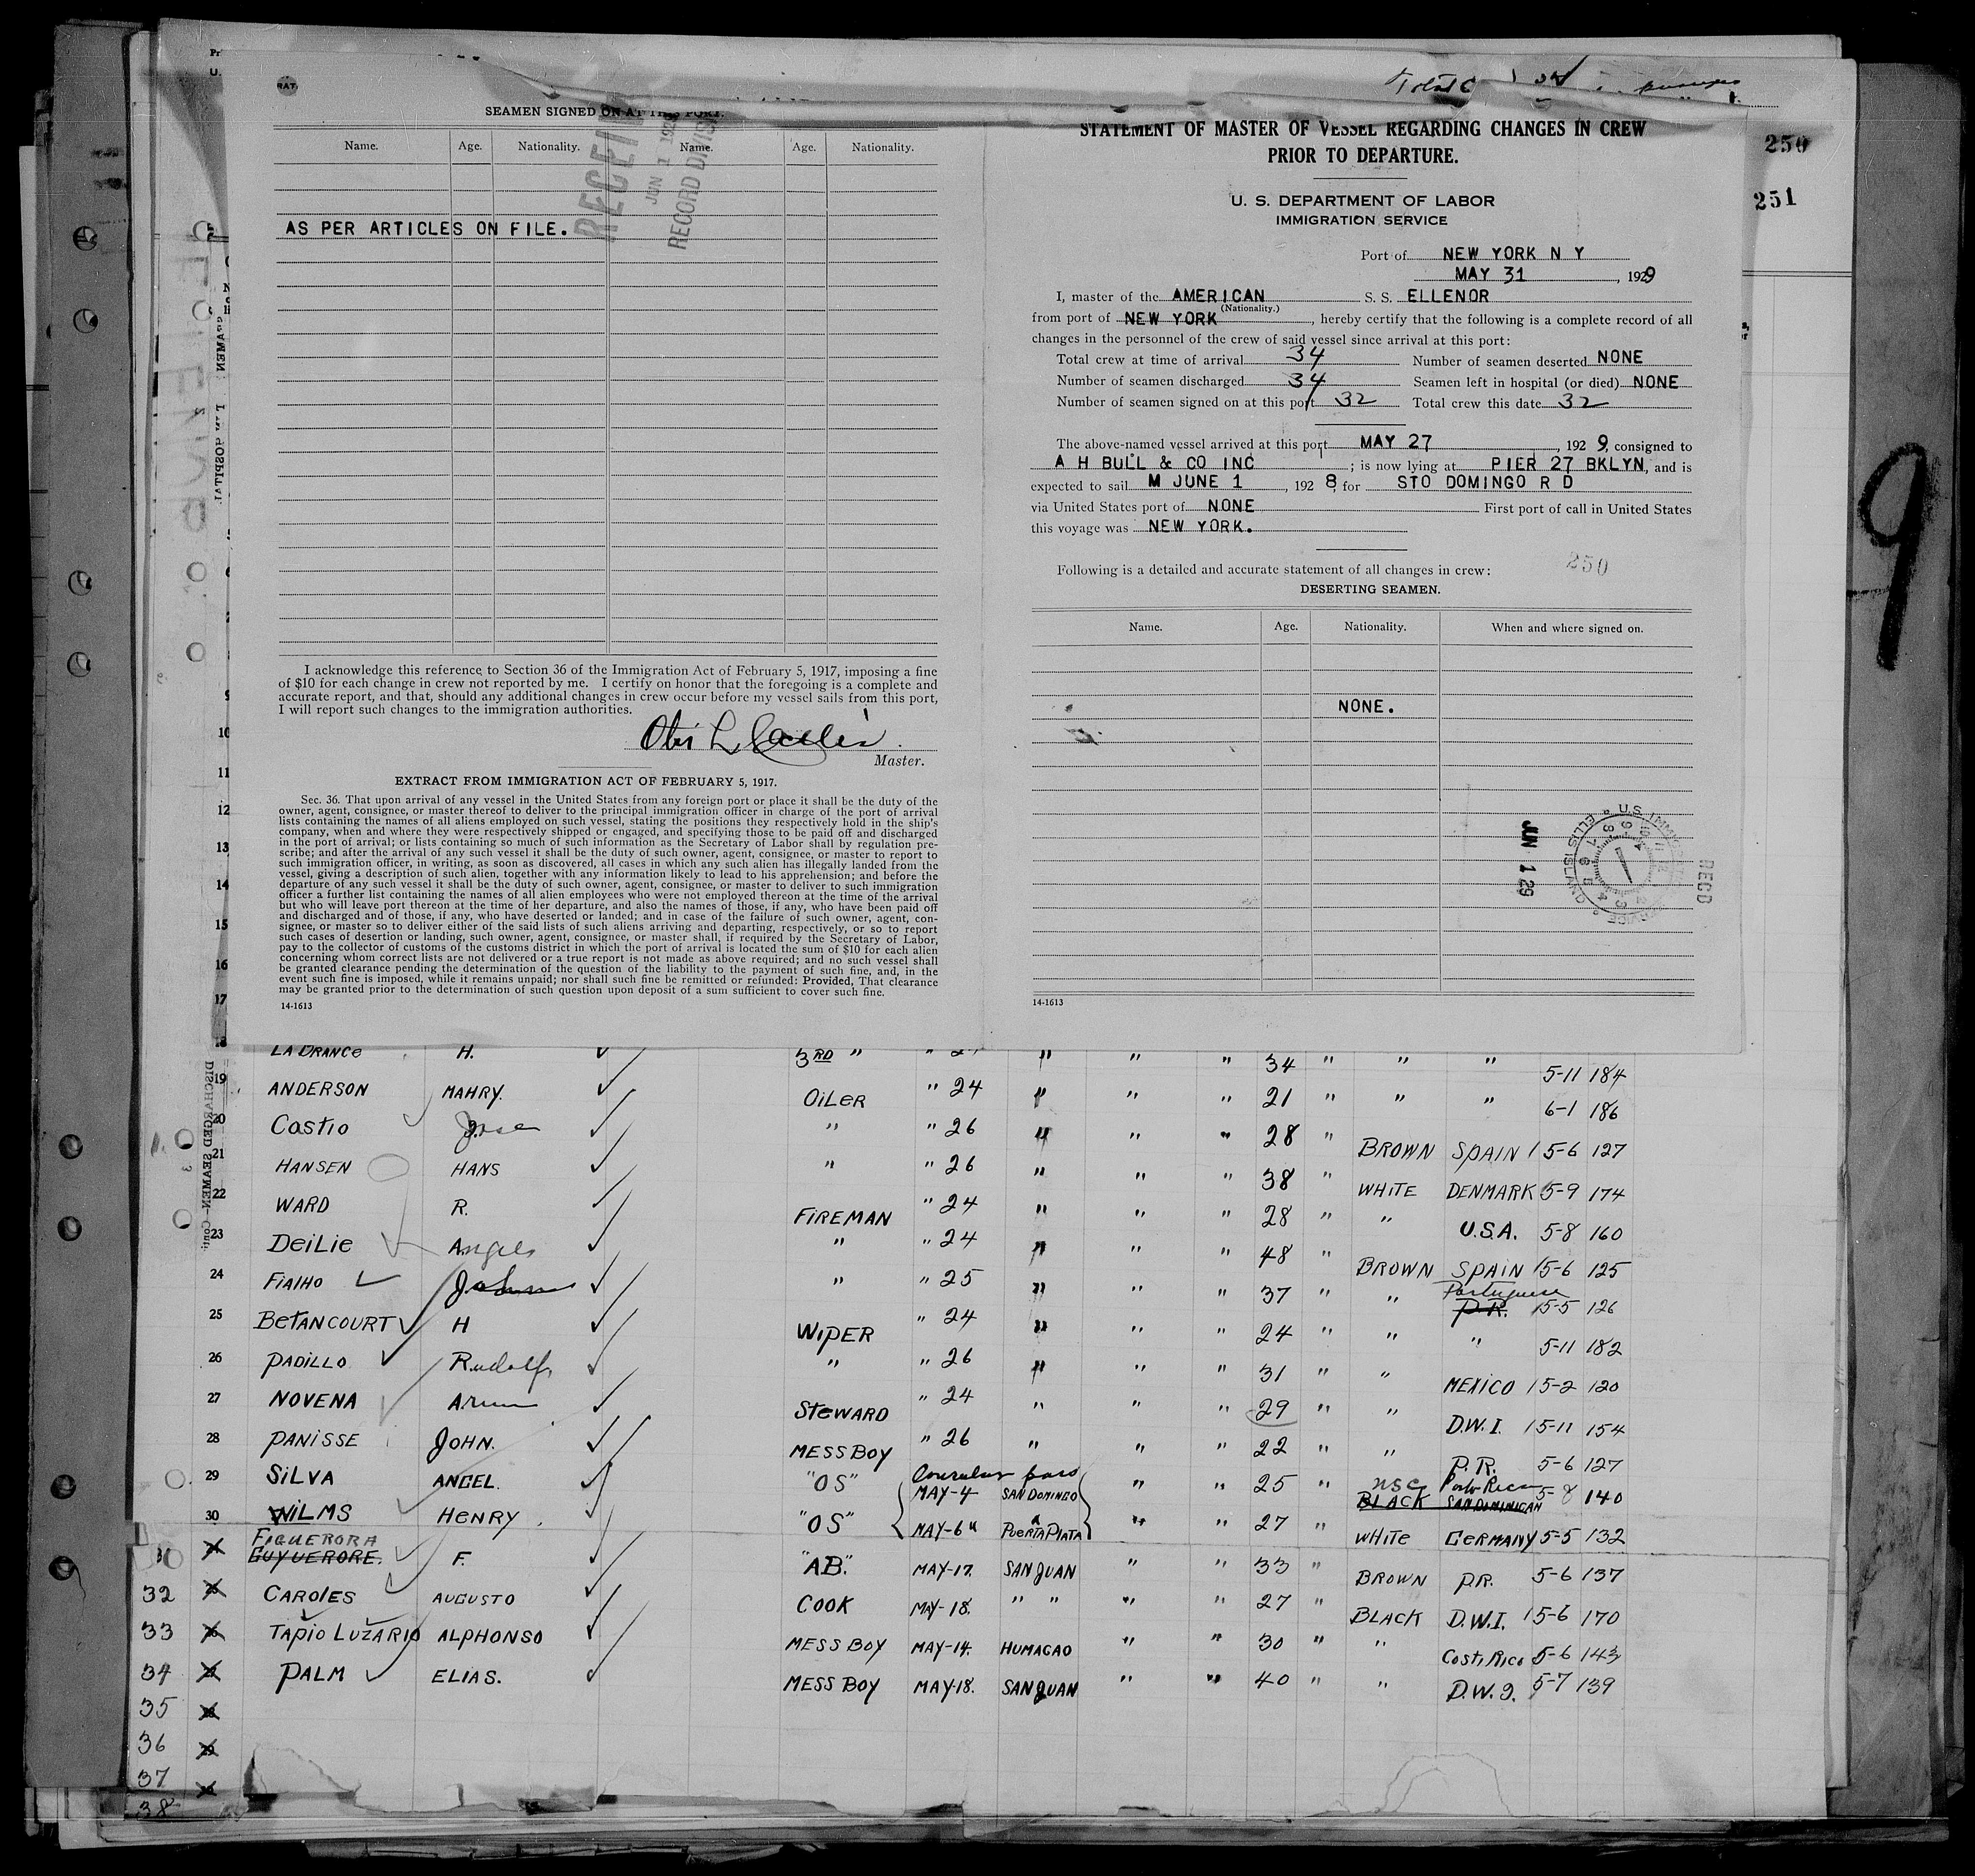 250
251
9
SEAMEN SIGNED ON AT THIS PORT.
Name. Age. Nationality. Name. Age. Nationality.
RECEIVED
JUN 1 1929
RECORD DIVISION
AS PER ARTICLES ON FILE.
I acknowledge this reference to Section 36 of the Immigration Act of February 5, 1917, imposing a fine
of $10 for each change in crew not reported by me. I certify on honor that the foregoing is a complete and
accurate report, and that, should any additional changes in crew occur before my vessel sails from this port,
I will report such changes to the immigration authorities.
Master.
EXTRACT FROM IMMIGRATION ACT OF FEBRUARY 5, 1917.
Sec. 36. That upon arrival of any vessel in the United States from any foreign port or place it shall be the duty of the
owner, agent, consignee, or master thereof to deliver to the principal immigration officer in charge of the port of arrival
lists containing the names of all aliens employed on such vessel, stating the positions they respectively hold in the ship's
company, when and where they were respectively shipped or engaged, and specifying those to be paid off and discharged
in the port of arrival; or lists containing so much of such information as the Secretary of Labor shall by regulation pre-
scribe; and after the arrival of any such vessel it shall be the duty of such owner, agent, consignee, or master to report to
such immigration officer, in writing, as soon as discovered, all cases in which any such alien has illegally landed from the
vessel, giving a description of such alien, together with any information likely to lead to his apprehension; and before the
departure of any such vessel it shall be the duty of such owner, agent, consignee, or master to deliver to such immigration
officer a further list containing the names of all alien employees who were not employed thereon at the time of the arrival
but who will leave port thereon at the time of her departure, and also the names of those, if any, who have been paid off
and discharged and of those, if any, who have deserted or landed; and in case of the failure of such owner, agent, con-
signee, or master so to deliver either of the said lists of such aliens arriving and departing, respectively, or so to report
such cases of desertion or landing, such owner, agent, consignee, or master shall, if required by the Secretary of Labor,
pay to the collector of customs of the customs district in which the port of arrival is located the sum of $10 for each alien
concerning whom correct lists are not delivered or a true report is not made as above required; and no such vessel shall
be granted clearance pending the determination of the question of the liability to the payment of such fine, and, in the
event such fine is imposed, while it remains unpaid; nor shall such fine be remitted or refunded: Provided, That clearance
may be granted prior to the determination of such question upon deposit of a sum sufficient to cover such fine.
14-1613
STATEMENT OF MASTER OF VESSEL REGARDING CHANGES IN CREW
PRIOR TO DEPARTURE.
U. S. DEPARTMENT OF LABOR
IMMIGRATION SERVICE
Port of NEW YORK N Y
MAY 31, 1929
I, master of the AMERICAN S. S. ELLENOR
(Nationality.)
from port of NEW YORK, hereby certify that the following is a complete record of all
changes in the personnel of the crew of said vessel since arrival at this port:
Total crew at time of arrival 34 Number of seamen deserted NONE
Number of seamen discharged 34 Seamen left in hospital (or died) NONE
Number of seamen signed on at this port 32 Total crew this date 32
The above-named vessel arrived at this port MAY 27, 1929, consigned to
A H BULL & CO INC; is now lying at PIER 27 BKLYN, and is
expected to sail M JUNE 1, 1928, for STO DOMINGO R D
via United States port of NONE First port of call in United States
this voyage was NEW YORK.
250
Following is a detailed and accurate statement of all changes in crew:
DESERTING SEAMEN.
Name. Age. Nationality. When and where signed on.
NONE.
JUN 1 29
REC'D
14-1613
DISCHARGED SEAMEN—Cont.
10
11
12
13
14
15
16
17
18 LA BRANCE H. 3RD " " " " " 34 " " " 5-11 184
19 ANDERSON MAHRY. OILER " 24 " " " 21 " " " 6-1 186
20 Castio Jose " " 26 " " " 28 " BROWN SPAIN 5-6 127
21 HANSEN HANS " " 26 " " " 38 " WHITE DENMARK 5-9 174
22 WARD R. FIREMAN " 24 " " " 28 " " U.S.A. 5-8 160
23 DEILIE Angeles " " 24 " " " 48 " BROWN SPAIN 5-6 125
24 FIALHO John " " 25 " " " 37 " " Portuguese P.R. 5-5 126
25 BETANCOURT H WIPER " 24 " " " 24 " " " 5-11 182
26 PADILLO Rudolf " " 26 " " " 31 " " MEXICO 5-2 120
27 NOVENA STEWARD " 24 " " " 29 " " D.W.I. 5-11 154
28 PANISSE JOHN. MESS BOY " 26 " " " 22 " " P.R. 5-6 127
29 SILVA ANGEL. "OS" MAY-4 SAN DOMINGO " " 25 " USC Porto Rico BLACK SAN DOMINICAN 5-8 140
30 WILMS HENRY. "OS" MAY-6 PUERTA PLATA " " 27 " WHITE GERMANY 5-5 132
31 FIGUERORA GUYUERORE. F. "AB." MAY-17. SAN JUAN " " 33 " BROWN P.R. 5-6 137
32 CAROLES AUGUSTO COOK MAY-18. " " " " 27 " BLACK D.W.I. 5-6 170
33 TAPIO LUZARIO ALPHONSO MESS BOY MAY-14. HUMACAO " " 30 " " Costa Rico 5-6 143
34 PALM ELIAS. MESS BOY MAY-18. SAN JUAN " " 40 " " D.W.I. 5-7 139
35
36
37
38